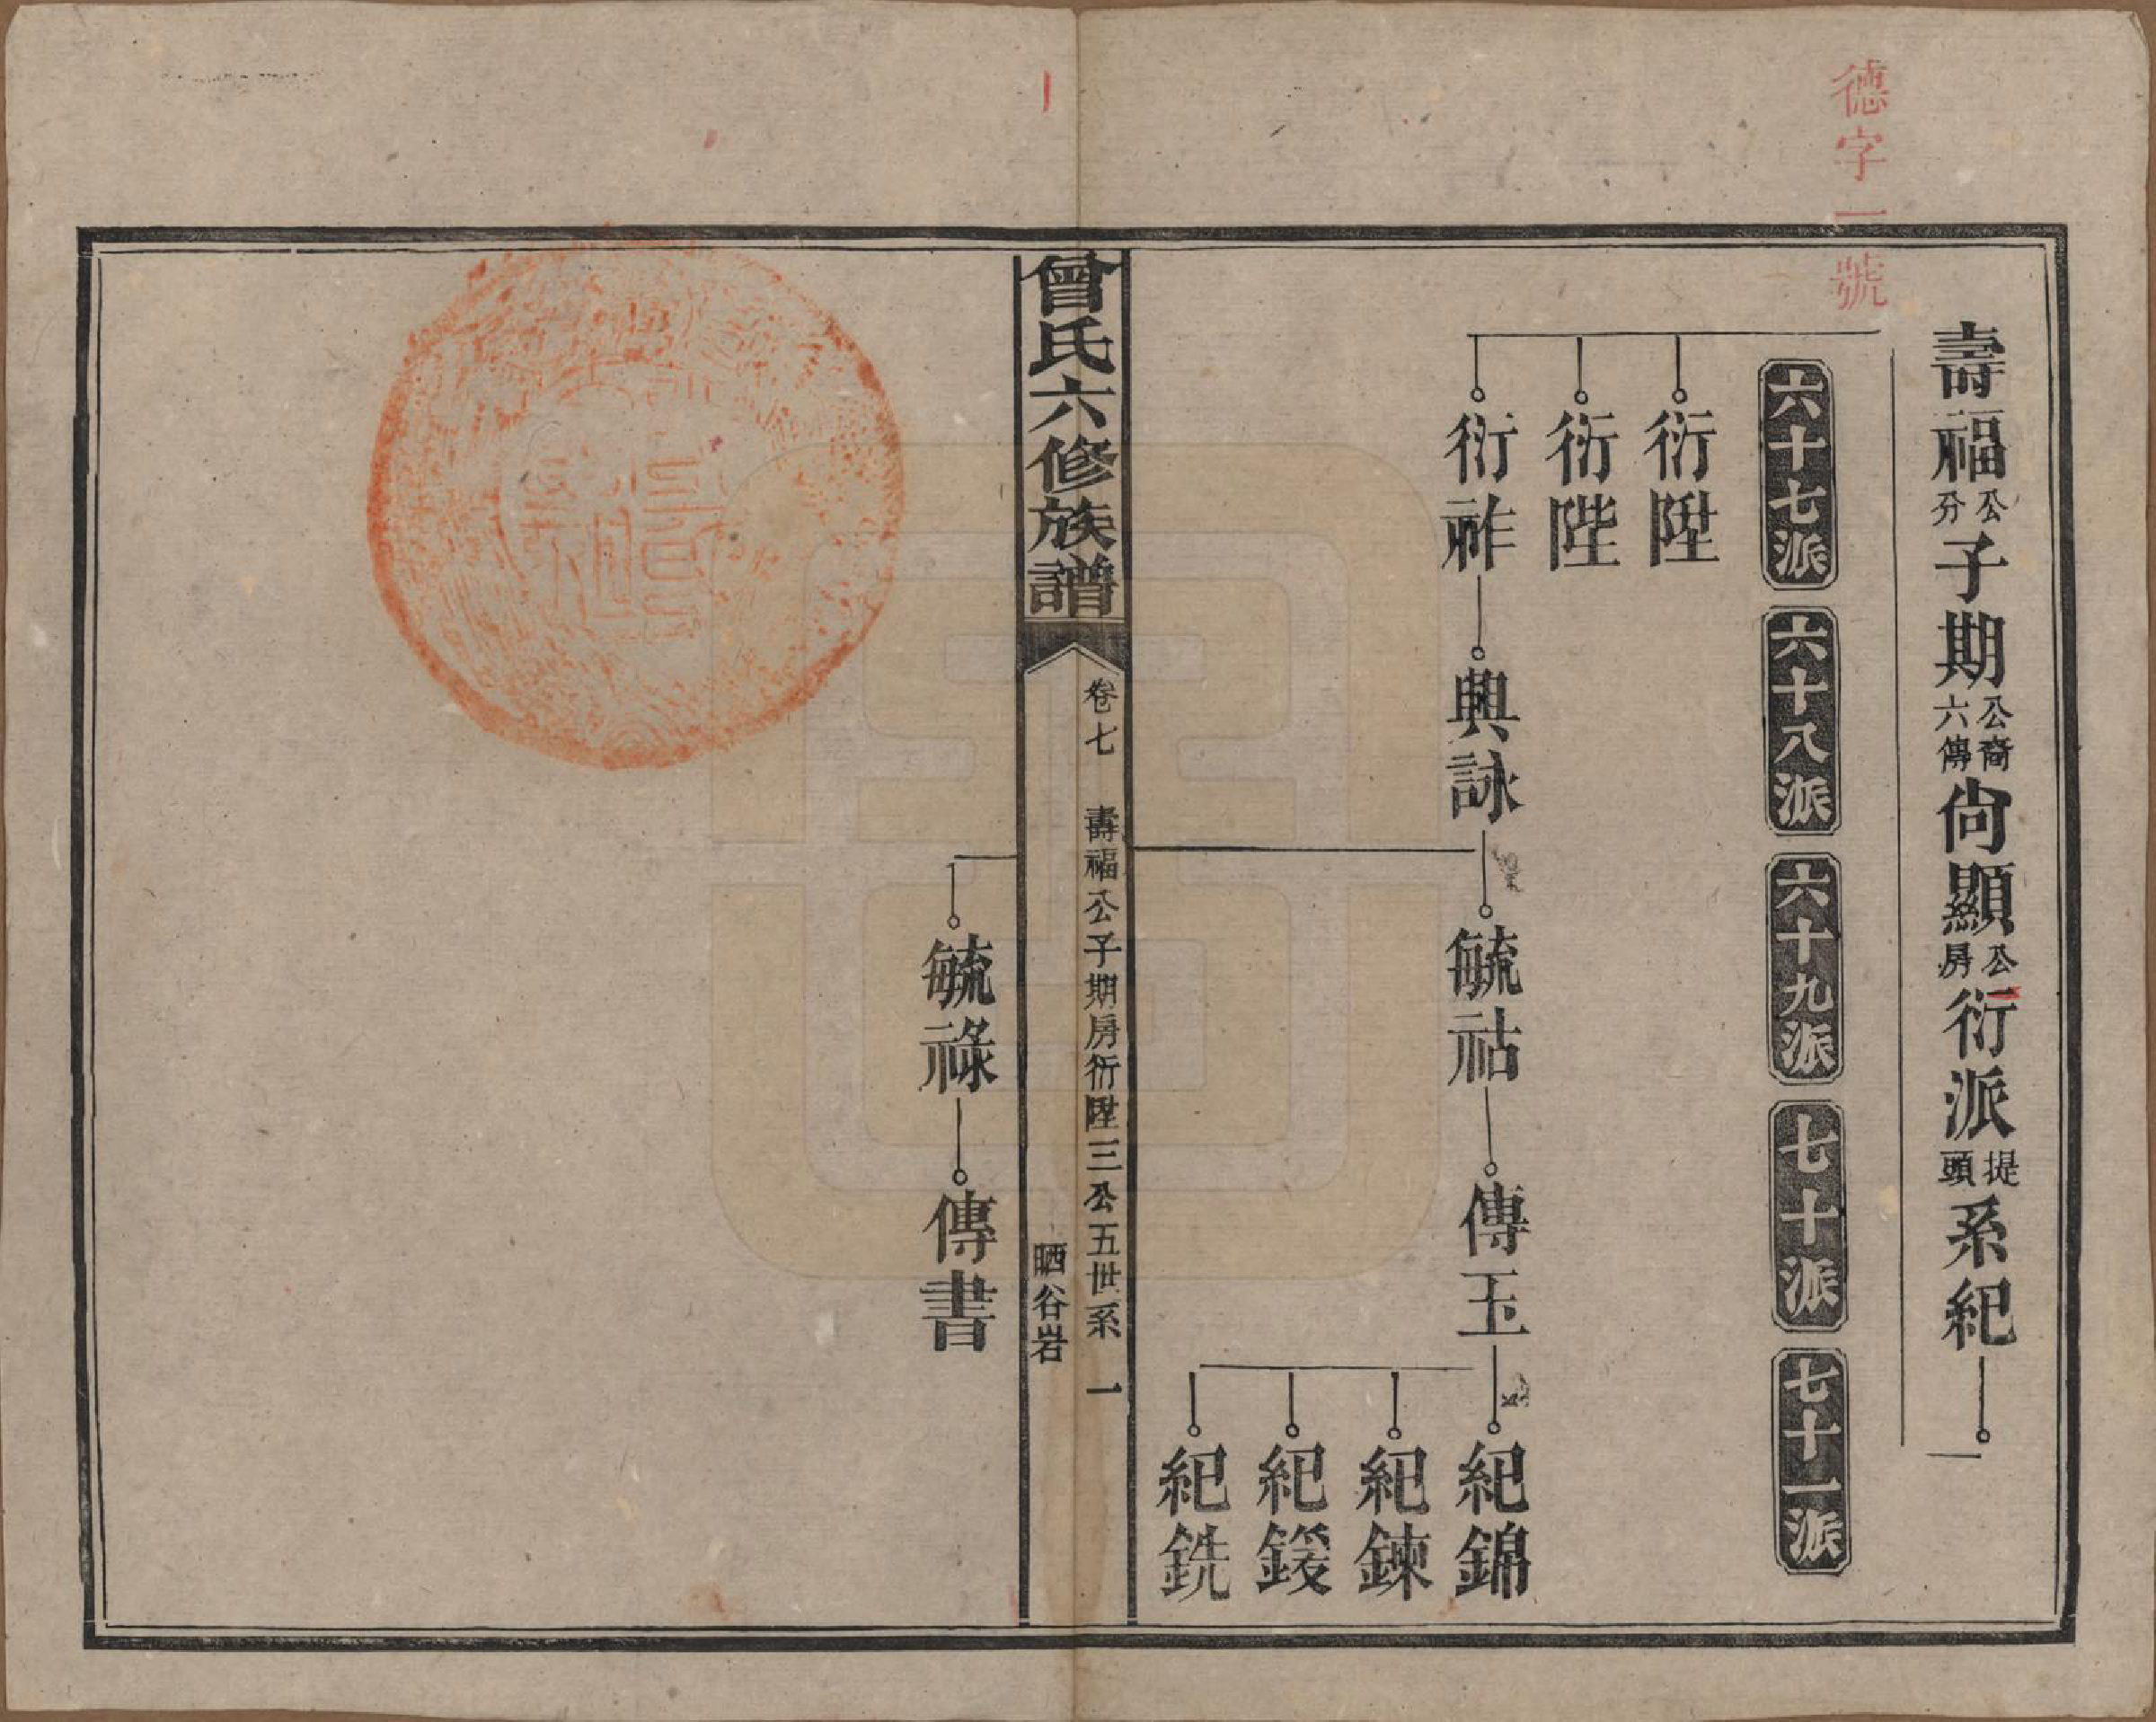 德字一號
壽福公分子期公裔六傳尙顯公房衍派提頭系紀
六十七派
六十八派
六十九派
七十派
七十一派
衍陞
衍陛
衍祚
興詠
毓祜
傳玉
紀錦
紀鍊
紀鍰
紀銑
曾氏六修族譜
卷七
壽福公子期房衍陞三公五世系
一
晒谷岩
毓祿
傳書